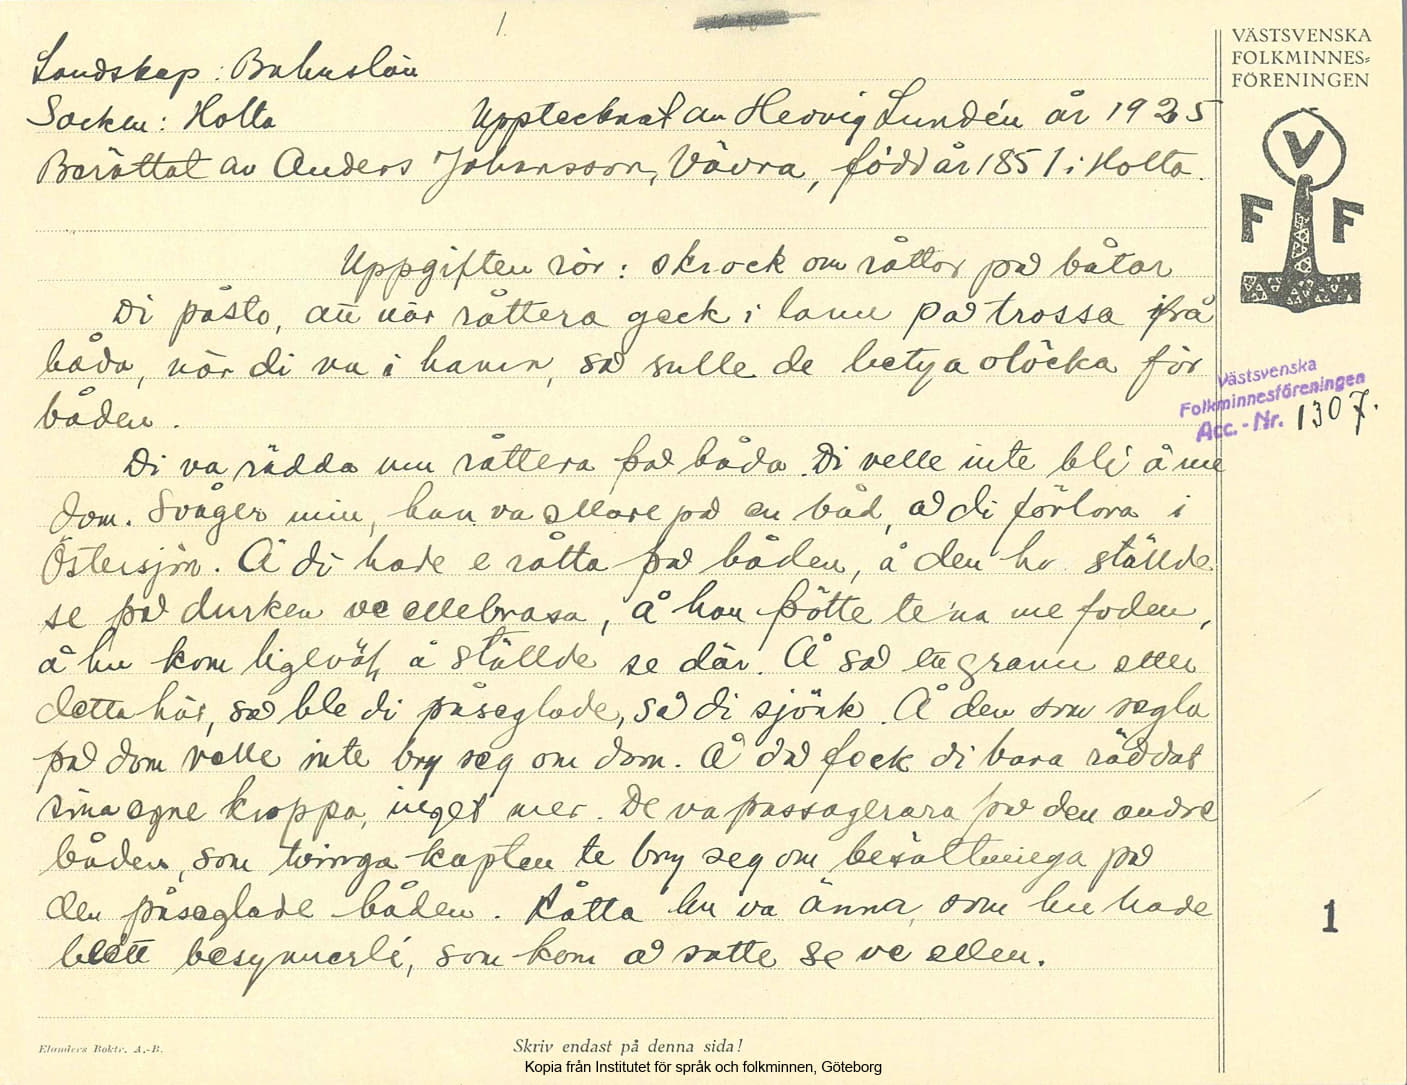 1.
VÄSTSVENSKA
FOLKMINNES-
FÖRENINGEN
V
F F
Landskap: Bohuslän
Socken: Holta Upptecknat av Hervig Lundén år 1925
Berättat av Anders Johansson, Vävra, född år 1851 i Holta.
Uppgiften rör: skrock om råttor på båtar
Di påsto, att når råttera geck i lann på trossa ifrå
båda, når di va i hamn, så sulle de betya olöcka för
båden.
Västsvenska
Folkminnesföreningen
Acc.-Nr. 1307.
Di va rädda um råttera på båda. Di velle inte bli å me
dom. Svåger min, han va ellare på en båd, å di förlora i
Östersjön. Å di hade e råtta på båden, å den ho ställde
se på durken ve ellebrasa, å han pötte te'na me foden,
å hu kom ligeväl å ställde se där. Å så ett grann etter
detta här, så ble di påseglade, så di sjönk. Å den som segla
på dom velle inte bry seg om dom. Å då feck di bara räddat
sina egne kroppa, inget mer. De va passagerara på den andre
båden, som tvinga kapten te bry seg om besättninga på
den påseglade båden. Råtta hu va änna som hu hade
blett besynnerli, som kom å satte se ve ellen.
1
Elanders Boktr. A.-B.
Skriv endast på denna sida!
Kopia från Institutet för språk och folkminnen, Göteborg